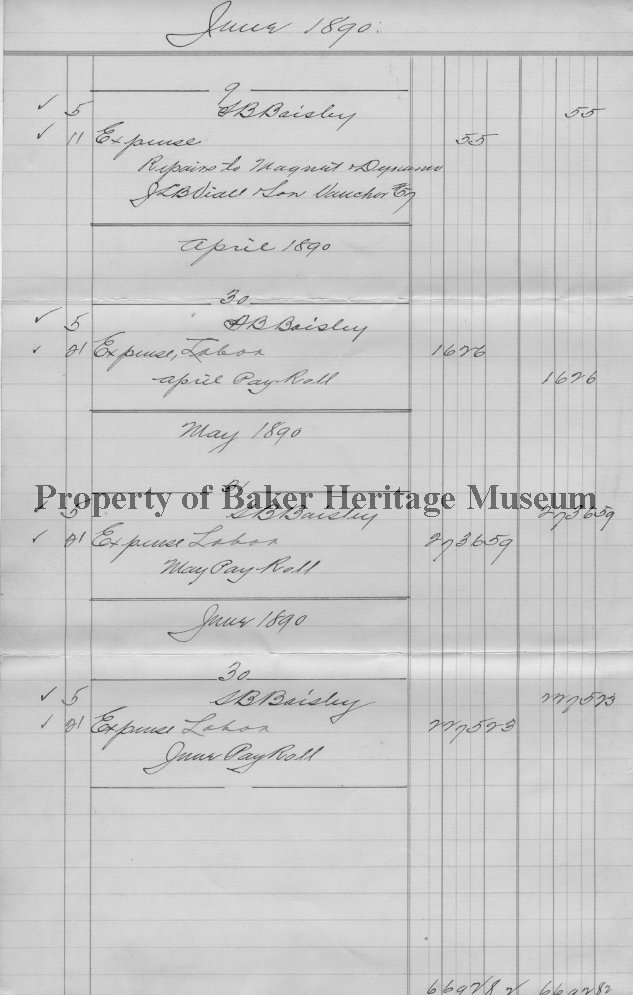 June 1890.
9
✓ 5 SB Baisley 55
✓ 11 Expense 55
Repairs to Magnet & Dynamo
& Son Voucher
April 1890
30
✓ 5 SB Baisley
✓ 21 Expense, Labor 1626
April Pay Roll 1626
May 1890
31
Property of Baker Heritage Museum
✓ 5 SB Baisley 273659
✓ 21 Expense Labor 273659
May Pay Roll
June 1890
30
✓ 5 SB Baisley 227523
✓ 21 Expense Labor 227523
June Pay Roll
669282 669282